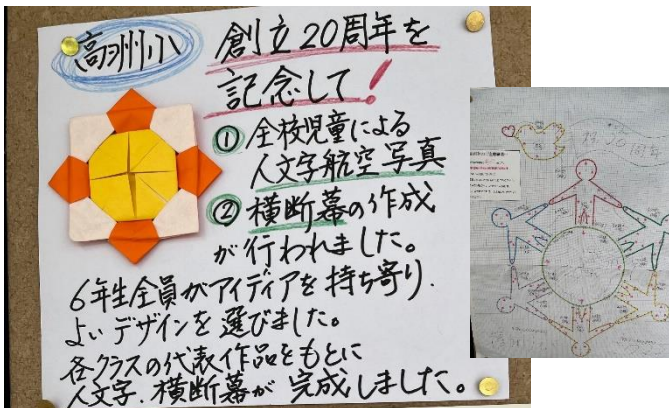 高洲小
創立20周年を
記念して!
① 全校児童による
人文字航空写真
② 横断幕の作成
が行われました。
6年生全員がアイディアを持ち寄り、
よいデザインを選びました。
各クラスの代表作品をもとに
人文字、横断幕が完成しました。